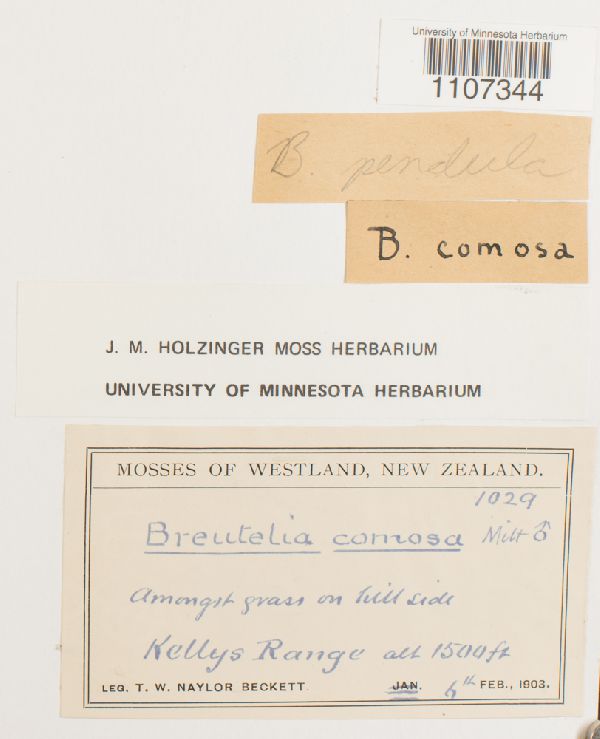 University of Minnesota Herbarium
1107344
B. pendula
B. comosa
J. M. HOLZINGER MOSS HERBARIUM
UNIVERSITY OF MINNESOTA HERBARIUM
MOSSES OF WESTLAND, NEW ZEALAND.
1029
Breutelia comosa Mitt ♂
Amongst grass on hill side
Kellys Range alt 1500 ft
LEG. T. W. NAYLOR BECKETT. JAN. 6th FEB., 1903.